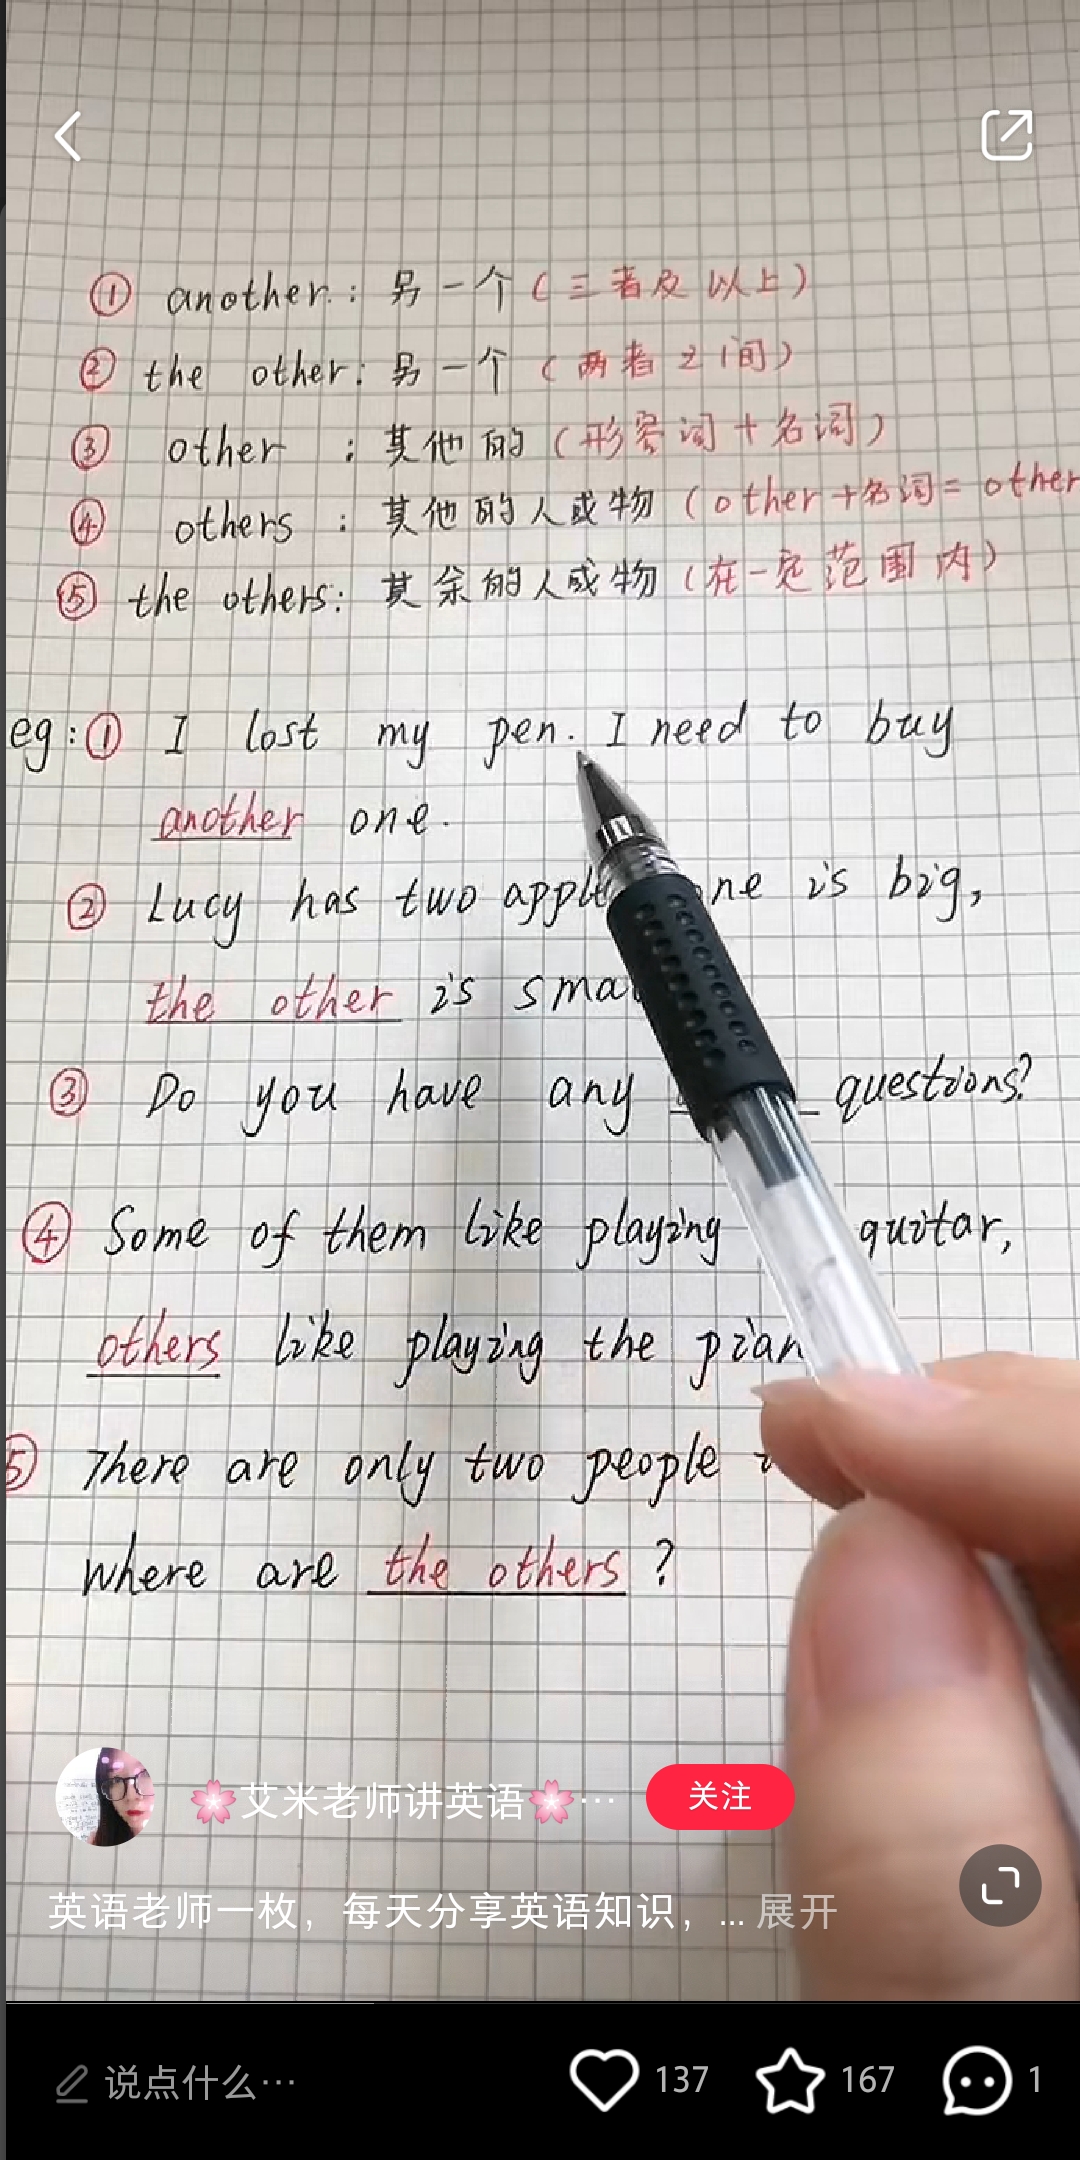 ① another: 另一个(三者及以上)
② the other: 另一个(两者之间)
③ other : 其他的(形容词+名词)
④ others : 其他的人或物(other+名词=other
⑤ the others: 其余的人或物(在一定范围内)
eg:① I lost my pen. I need to buy
another one.
② Lucy has two is big,
the other is
③ Do you have any questions?
④ Some of them like playing quitar,
others like playing the
⑤ There are only two people
where are the others ?
🌸艾米老师讲英语🌸… 关注
英语老师一枚，每天分享英语知识，... 展开
说点什么… 137 167 1